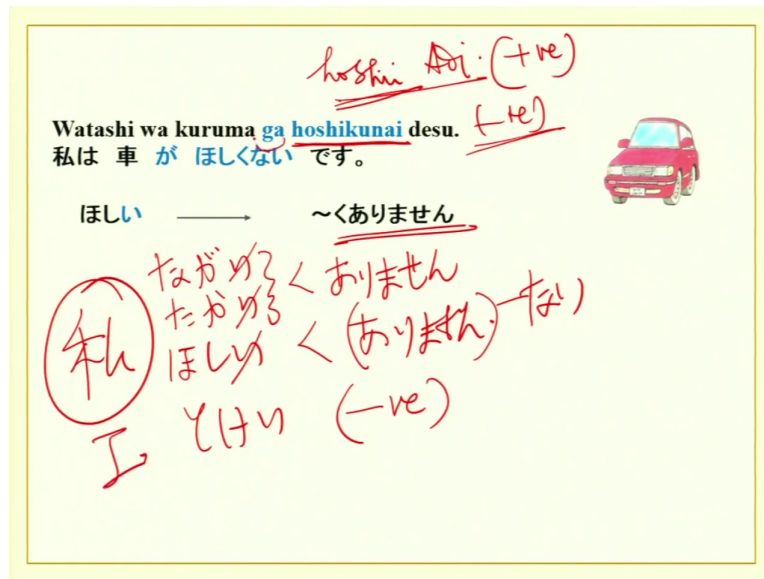 hoshii Adj. (+ve)
Watashi wa kuruma ga hoshikunai desu. (-ve)
私は 車 が ほしくない です。
ほしい → 〜くありません
ながい く ありません
たかい
ほしい く (ありません) ーない
私
I とけい (-ve)